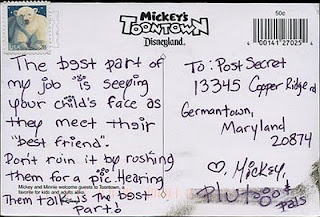 MICKEY'S
TOONTOWN
Disneyland.
50¢
4 00141 27025 4
The best part of
my job is seeing
your child's face as
they meet their
"best friend".
Don't ruin it by rushing
them for a pic. Hearing
Them talk is The best
Part!
Mickey and Minnie welcome guests to Toontown, a
favorite for kids and adults alike.
To: Post Secret
13345 Copper Ridge rd
Germantown,
Maryland
20874
♡, Mickey,
Pluto &
Pals